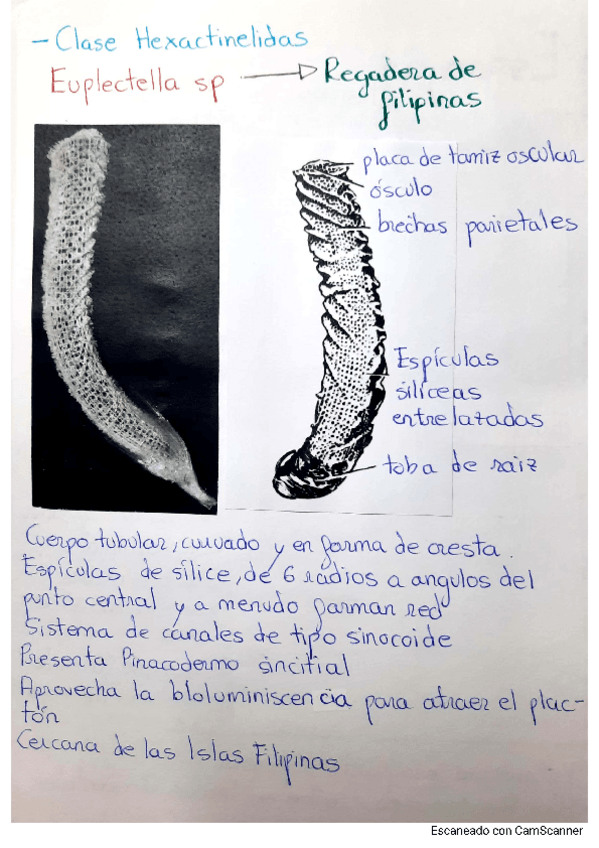 - Clase Hexactinelidas
Euplectella sp → Regadera de
filipinas
placa de tamiz oscular
ósculo
brechas parietales
Espículas
silíceas
entrelazadas
toba de raiz
Cuerpo tubular, curvado y en forma de cresta.
Espículas de sílice, de 6 radios a angulos del
punto central y a menudo forman red
Sistema de canales de tipo sinocoide
Presenta Pinacodermo sincitial
Aprovecha la bioluminiscencia para atraer el plac-
tón
Cercana de las Islas Filipinas
Escaneado con CamScanner